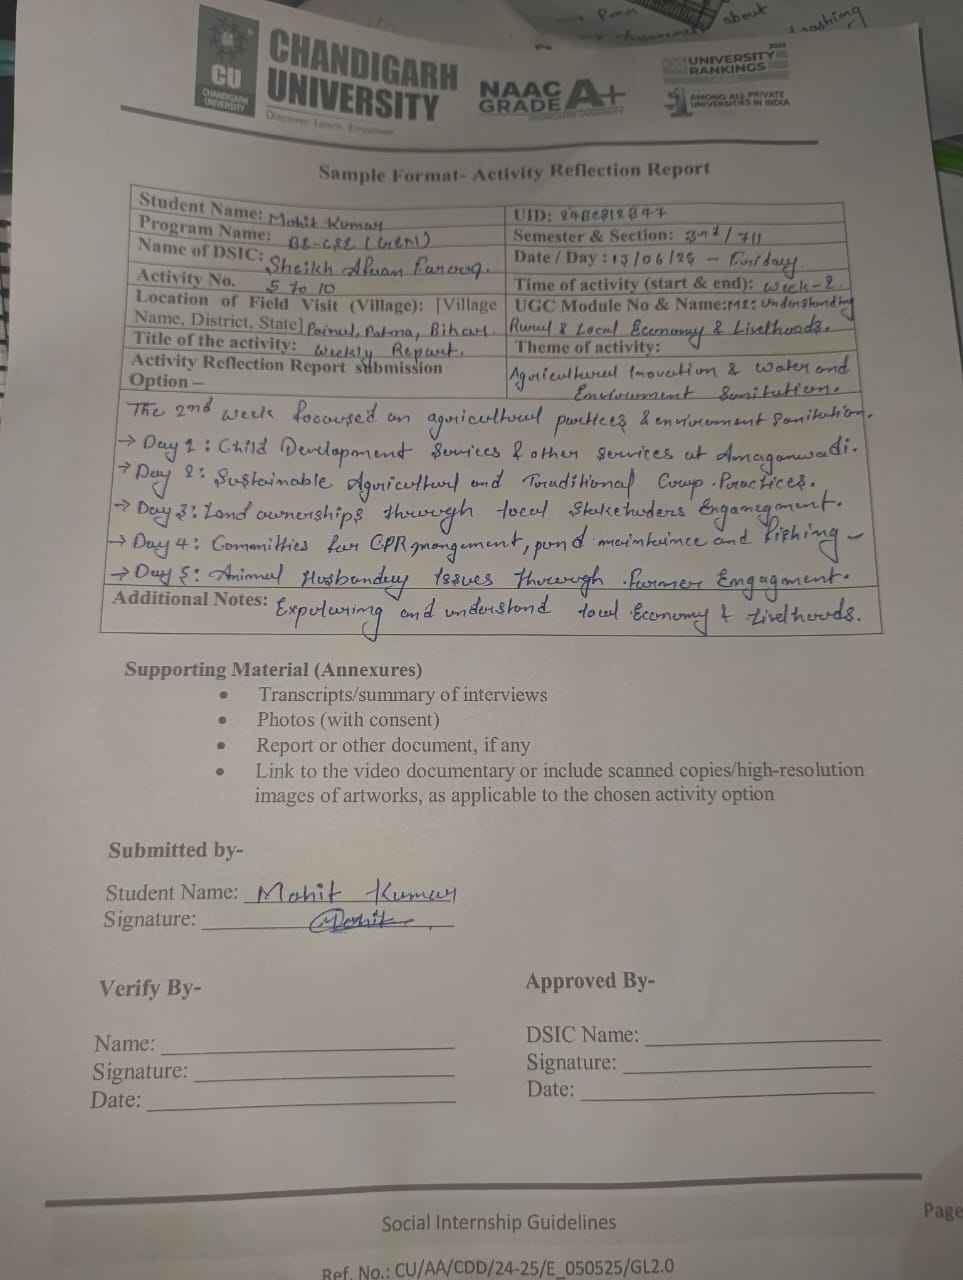 Poon
about
CU
CHANDIGARH
UNIVERSITY
CHANDIGARH
UNIVERSITY
Discover. Learn. Empower.
NAAC
GRADE A+
ACCREDITED UNIVERSITY
UNIVERSITY
RANKINGS
AMONG ALL PRIVATE
UNIVERSITIES IN INDIA
Sample Format- Activity Reflection Report
Student Name: Mohit Kumar
UID: 24BCS12847
Program Name: BE-CSE (GEN)
Semester & Section: 3rd / 711
Name of DSIC: Sheikh Afnan Farooq.
Date / Day : 13/06/25 - Friday
Activity No. 5 to 10
Time of activity (start & end): Week-2.
Location of Field Visit (Village): [Village
Name, District, State] Painul, Patna, Bihar.
UGC Module No & Name: M2: Understanding
Rural & Local Economy & Livelhoods.
Title of the activity: Weekly Report.
Theme of activity:
Agricultural Inovation & Water and
Enviorment Sanitation.
Activity Reflection Report submission
Option –
The 2nd week focoused on agricultural pactices & enviorment Sanitation.
→ Day 1 : Child Development Survices & other services at Amaganwadi.
→ Day 2: Sustainable Agricultural and Traditional Corp Practices.
→ Day 3: Land ownerships through local Stakehuders Enganegment.
→ Day 4: Committies for CPR mangement, pond maintaince and fishing –
→ Day 5: Animal Husbandry Issues through farmer Engagment.
Additional Notes: Expoluring and understand local Economy & Livelhoods.
Supporting Material (Annexures)
• Transcripts/summary of interviews
• Photos (with consent)
• Report or other document, if any
• Link to the video documentary or include scanned copies/high-resolution
images of artworks, as applicable to the chosen activity option
Submitted by-
Student Name: Mohit Kumar
Signature: Mohit
Verify By-
Approved By-
Name:
DSIC Name:
Signature:
Signature:
Date:
Date:
Social Internship Guidelines
Page
Ref. No.: CU/AA/CDD/24-25/E_050525/GL2.0